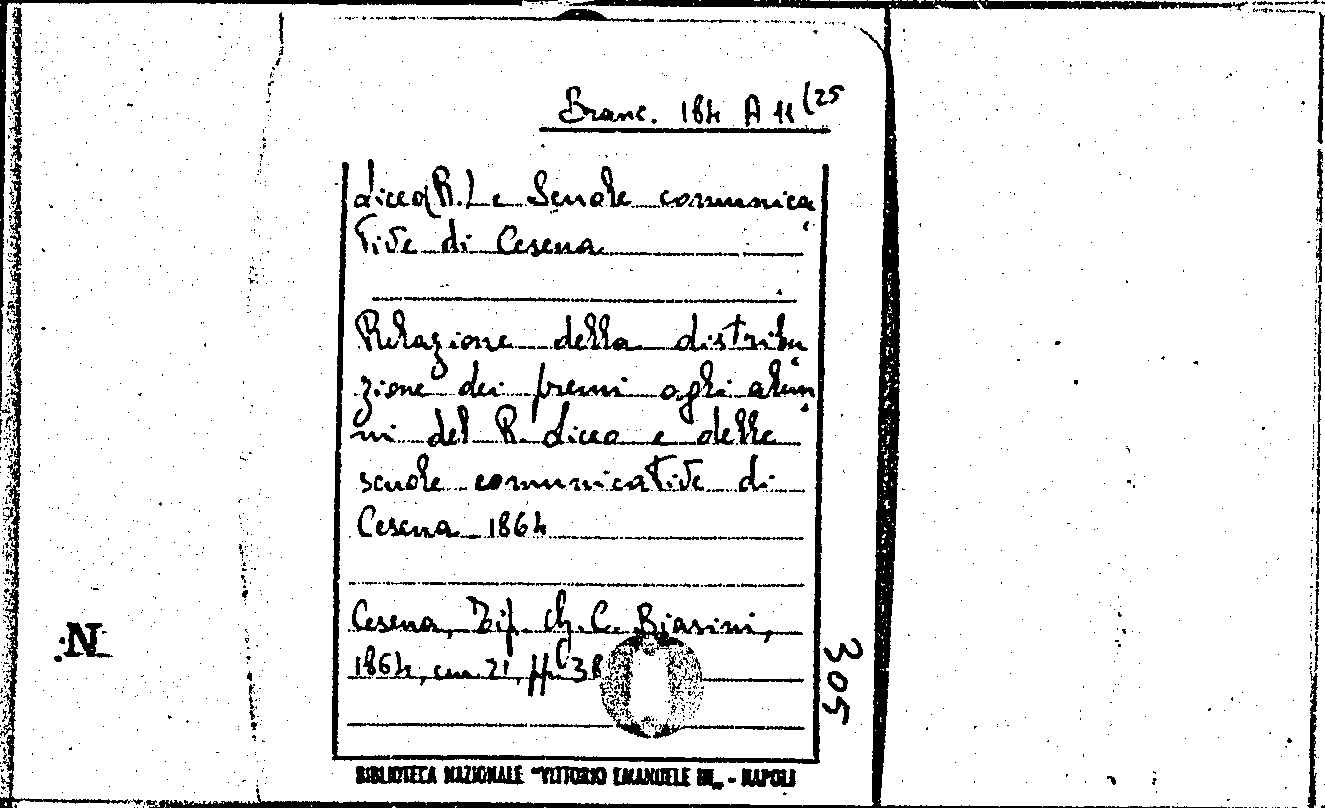 Branc. 184 A 11 (25
Liceo (R.) e Scuole comunica
tive di Cesena
Relazione della distribu
zione dei premi agli alun
ni del R. Liceo e delle
scuole comunicative di
Cesena 1864
Cesena, Tip. C. Biasini,
1864, cm. 21, pp. 38
305
N
BIBLIOTECA NAZIONALE "VITTORIO EMANUELE III„ - NAPOLI